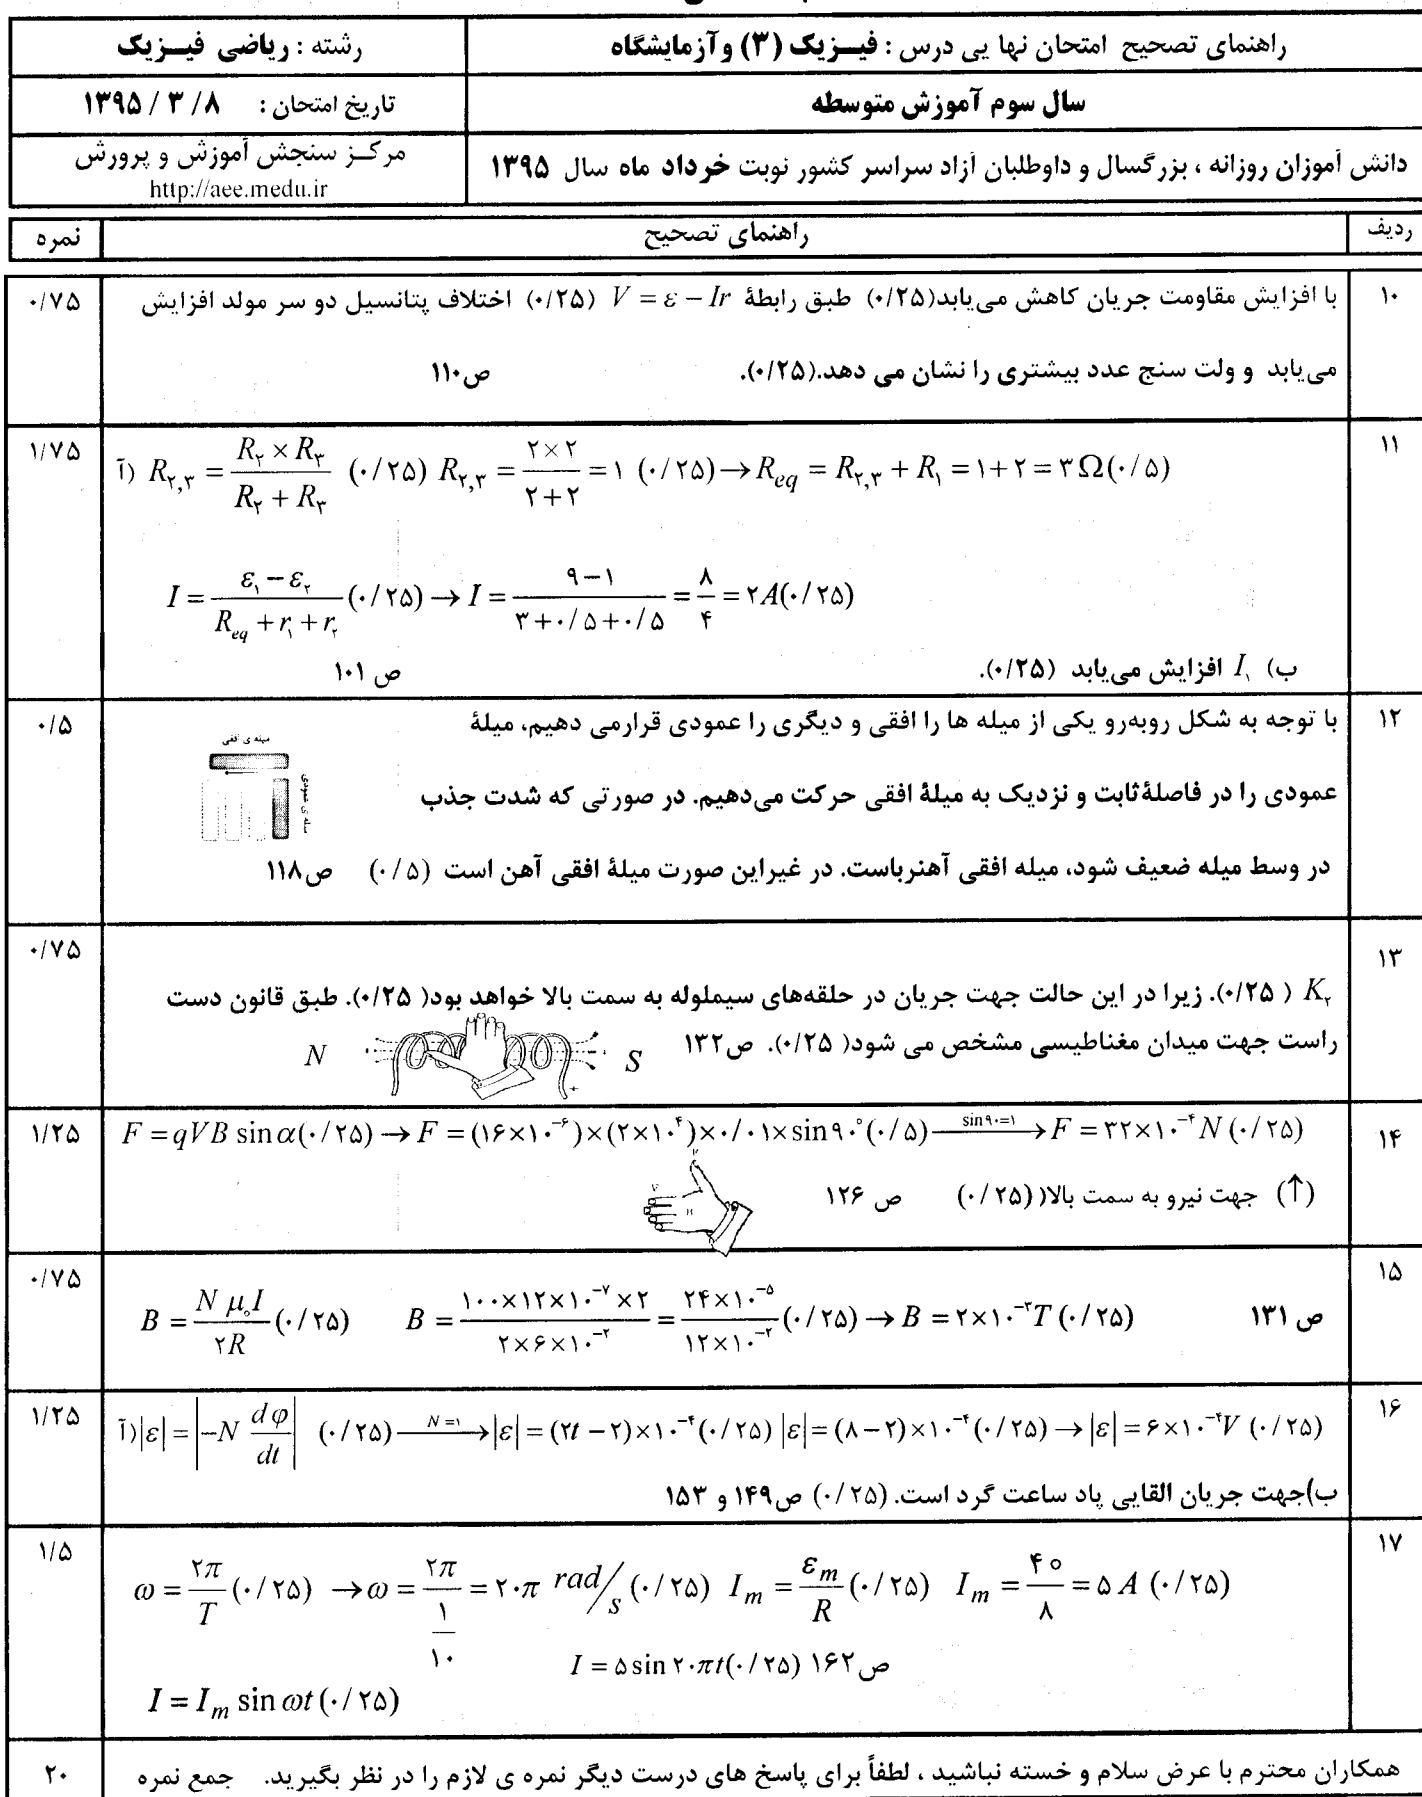 راهنمای تصحیح امتحان نها یی درس : فیـزیک (۳) وآزمایشگاه
رشته : ریاضی فیـزیک
سال سوم آموزش متوسطه
تاریخ امتحان : ۸ / ۳ / ۱۳۹۵
دانش آموزان روزانه ، بزرگسال و داوطلبان آزاد سراسر کشور نوبت خرداد ماه سال ۱۳۹۵
مرکـز سنجش آموزش و پرورش
http://aee.medu.ir
ردیف
راهنمای تصحیح
نمره
۱۰
با افزایش مقاومت جریان کاهش می‌یابد(۰/۲۵) طبق رابطهٔ V = ε − Ir (۰/۲۵) اختلاف پتانسیل دو سر مولد افزایش
۰/۷۵
می‌یابد و ولت سنج عدد بیشتری را نشان می دهد.(۰/۲۵). ص۱۱۰
۱۱
آ) R₂,₃ = (R₂ × R₃)/(R₂ + R₃) (۰/۲۵) R₂,₃ = (۲×۲)/(۲+۲) = ۱ (۰/۲۵) → R_eq = R₂,₃ + R₁ = ۱+۲ = ۳Ω(۰/۵)
۱/۷۵
I = (ε₁ − ε₂)/(R_eq + r₁ + r₂) (۰/۲۵) → I = (۹−۱)/(۳+۰/۵+۰/۵) = ۸/۴ = ۲A(۰/۲۵)
ب) I₁ افزایش می‌یابد (۰/۲۵). ص ۱۰۱
۱۲
با توجه به شکل روبه‌رو یکی از میله ها را افقی و دیگری را عمودی قرارمی دهیم، میلهٔ
۰/۵
میله ی افقی
میله ی عمودی
عمودی را در فاصلهٔ ثابت و نزدیک به میلهٔ افقی حرکت می‌دهیم. در صورتی که شدت جذب
در وسط میله ضعیف شود، میله افقی آهنرباست. در غیراین صورت میلهٔ افقی آهن است (۰/۵) ص۱۱۸
۱۳
۰/۷۵
K₂ ( ۰/۲۵). زیرا در این حالت جهت جریان در حلقه‌های سیملوله به سمت بالا خواهد بود( ۰/۲۵). طبق قانون دست
راست جهت میدان مغناطیسی مشخص می شود( ۰/۲۵). ص۱۳۲
N S
۱۴
F = qVB sin α(۰/۲۵) → F = (۱۶×۱۰⁻⁶)×(۲×۱۰⁴)×۰/۰۱×sin ۹۰°(۰/۵) —sin۹۰=۱→ F = ۳۲×۱۰⁻⁴ N (۰/۲۵)
۱/۲۵
(↑) جهت نیرو به سمت بالا( (۰/۲۵) ص ۱۲۶
۱۵
B = (N μ₀I)/(۲R) (۰/۲۵) B = (۱۰۰×۱۲×۱۰⁻⁷×۲)/(۲×۶×۱۰⁻²) = (۲۴×۱۰⁻⁵)/(۱۲×۱۰⁻²) (۰/۲۵) → B = ۲×۱۰⁻³T (۰/۲۵) ص ۱۳۱
۰/۷۵
۱۶
آ) |ε| = |−N dφ/dt| (۰/۲۵) —N=۱→ |ε| = (۲t − ۲)×۱۰⁻⁴(۰/۲۵) |ε| = (۸−۲)×۱۰⁻⁴(۰/۲۵) → |ε| = ۶×۱۰⁻⁴V (۰/۲۵)
۱/۲۵
ب)جهت جریان القایی پاد ساعت گرد است. (۰/۲۵) ص۱۴۹ و ۱۵۳
۱۷
ω = ۲π/T (۰/۲۵) → ω = ۲π/(۱/۱۰) = ۲۰π rad/s (۰/۲۵) I_m = ε_m/R (۰/۲۵) I_m = ۴۰/۸ = ۵ A (۰/۲۵)
۱/۵
I = ۵ sin ۲۰πt(۰/۲۵) ص۱۶۲
I = I_m sin ωt (۰/۲۵)
همکاران محترم با عرض سلام و خسته نباشید ، لطفاً برای پاسخ های درست دیگر نمره ی لازم را در نظر بگیرید. جمع نمره
۲۰